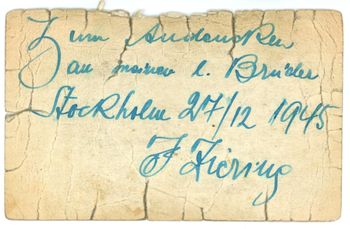 Zum Andenken
an meinen l. Brüder
Stockholm 27/12 1945
J Ziering